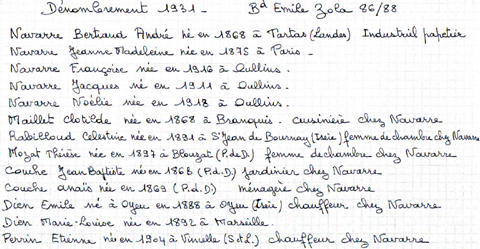 Dénombrement 1931 - Bd Emile Zola 86/88
Navarre Bertrand André né en 1868 à Tartas (Landes) Industriel papetier
Navarre Jeanne Madeleine née en 1875 à Paris -
Navarre Françoise née en 1916 à Oullins.
Navarre Jacques né en 1911 à Oullins.
Navarre Noëlie née en 1918 à Oullins.
Maillet Clotilde née en 1868 à Branquis. cuisinière chez Navarre
Rabilloud Celestine née en 1891 à St Jean de Bournay (Isère) femme de chambre chez Navarre
Mozat Thérèse née en 1897 à Blouzat (P.de.D.) femme de chambre chez Navarre
Couche Jean Baptiste né en 1868 (P.d.D) jardinier chez Navarre
Couche anaïs née en 1869 (P.d.D) ménagère chez Navarre
Dien Emile né à Oyeu en 1888 à Oyeu (Isère) chauffeur chez Navarre
Dien Marie-Louise née en 1892 à Marseille.
Perrin Etienne né en 1904 à Vinzelle (S.et.L.) chauffeur chez Navarre